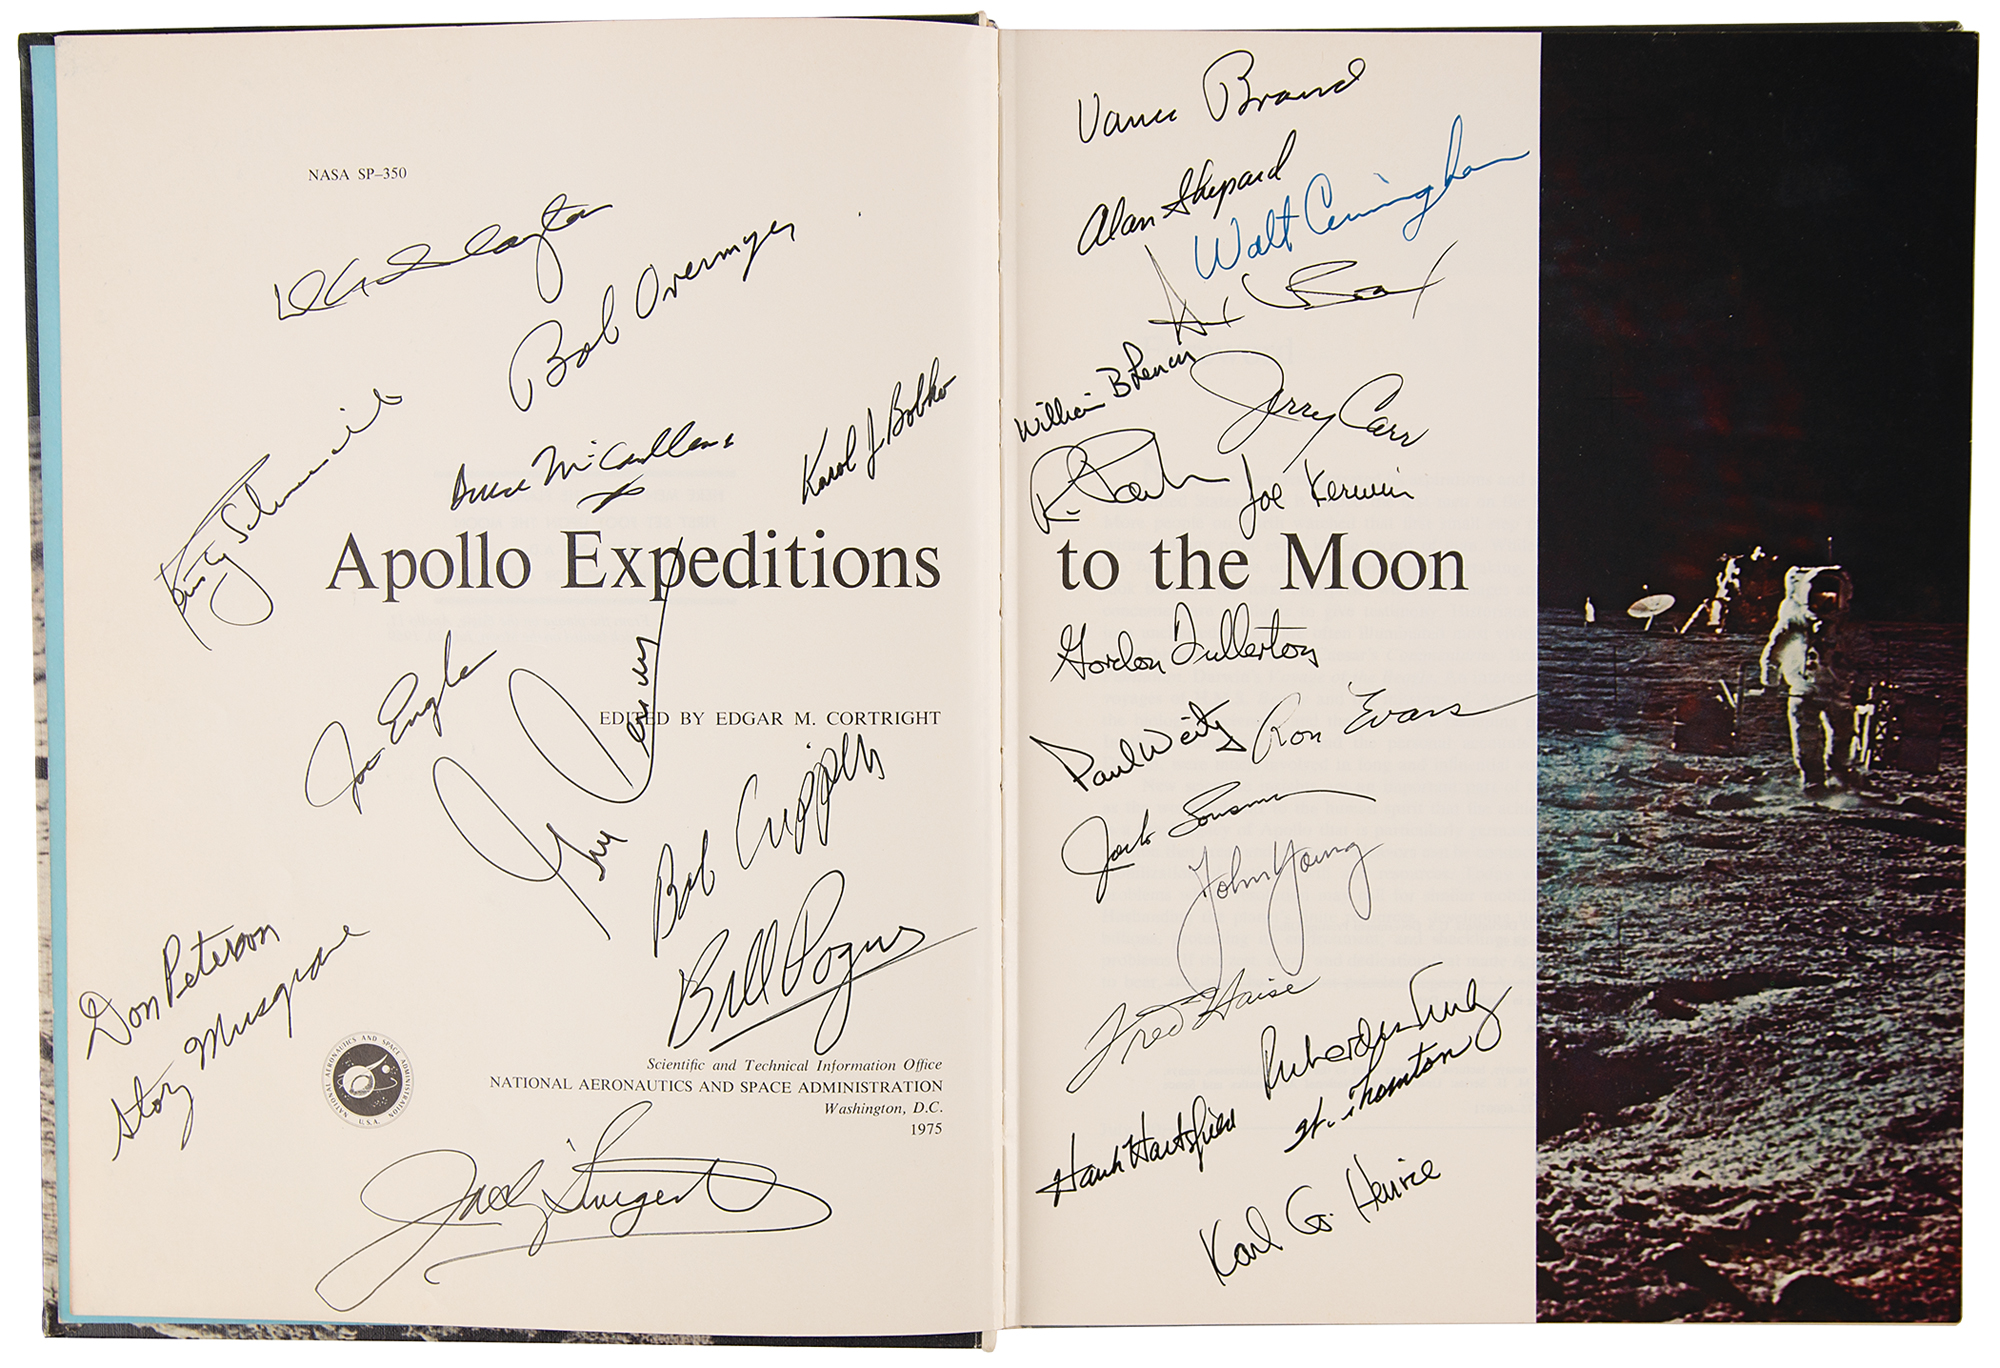 NASA SP–350
D K Slayton
Bob Overmyer
Rusty Schweickart
Bruce McCandless
Karol J Bobko
Apollo Expeditions
Joe Engle
EDITED BY EDGAR M. CORTRIGHT
Gene Cernan
Bob Crippen
Bill Pogue
Don Peterson
Story Musgrave
NATIONAL AERONAUTICS AND SPACE ADMINISTRATION
U.S.A.
Scientific and Technical Information Office
NATIONAL AERONAUTICS AND SPACE ADMINISTRATION
Washington, D.C.
1975
Vance Brand
Alan Shepard
Walt Cunningham
William B Lenoir
Jerry Carr
R. Parker
Joe Kerwin
to the Moon
Gordon Fullerton
Paul Weitz
Ron Evans
Jack Lousma
John Young
Fred Haise
Richard H Truly
Hank Hartsfield
W. Thornton
Karl G. Henize